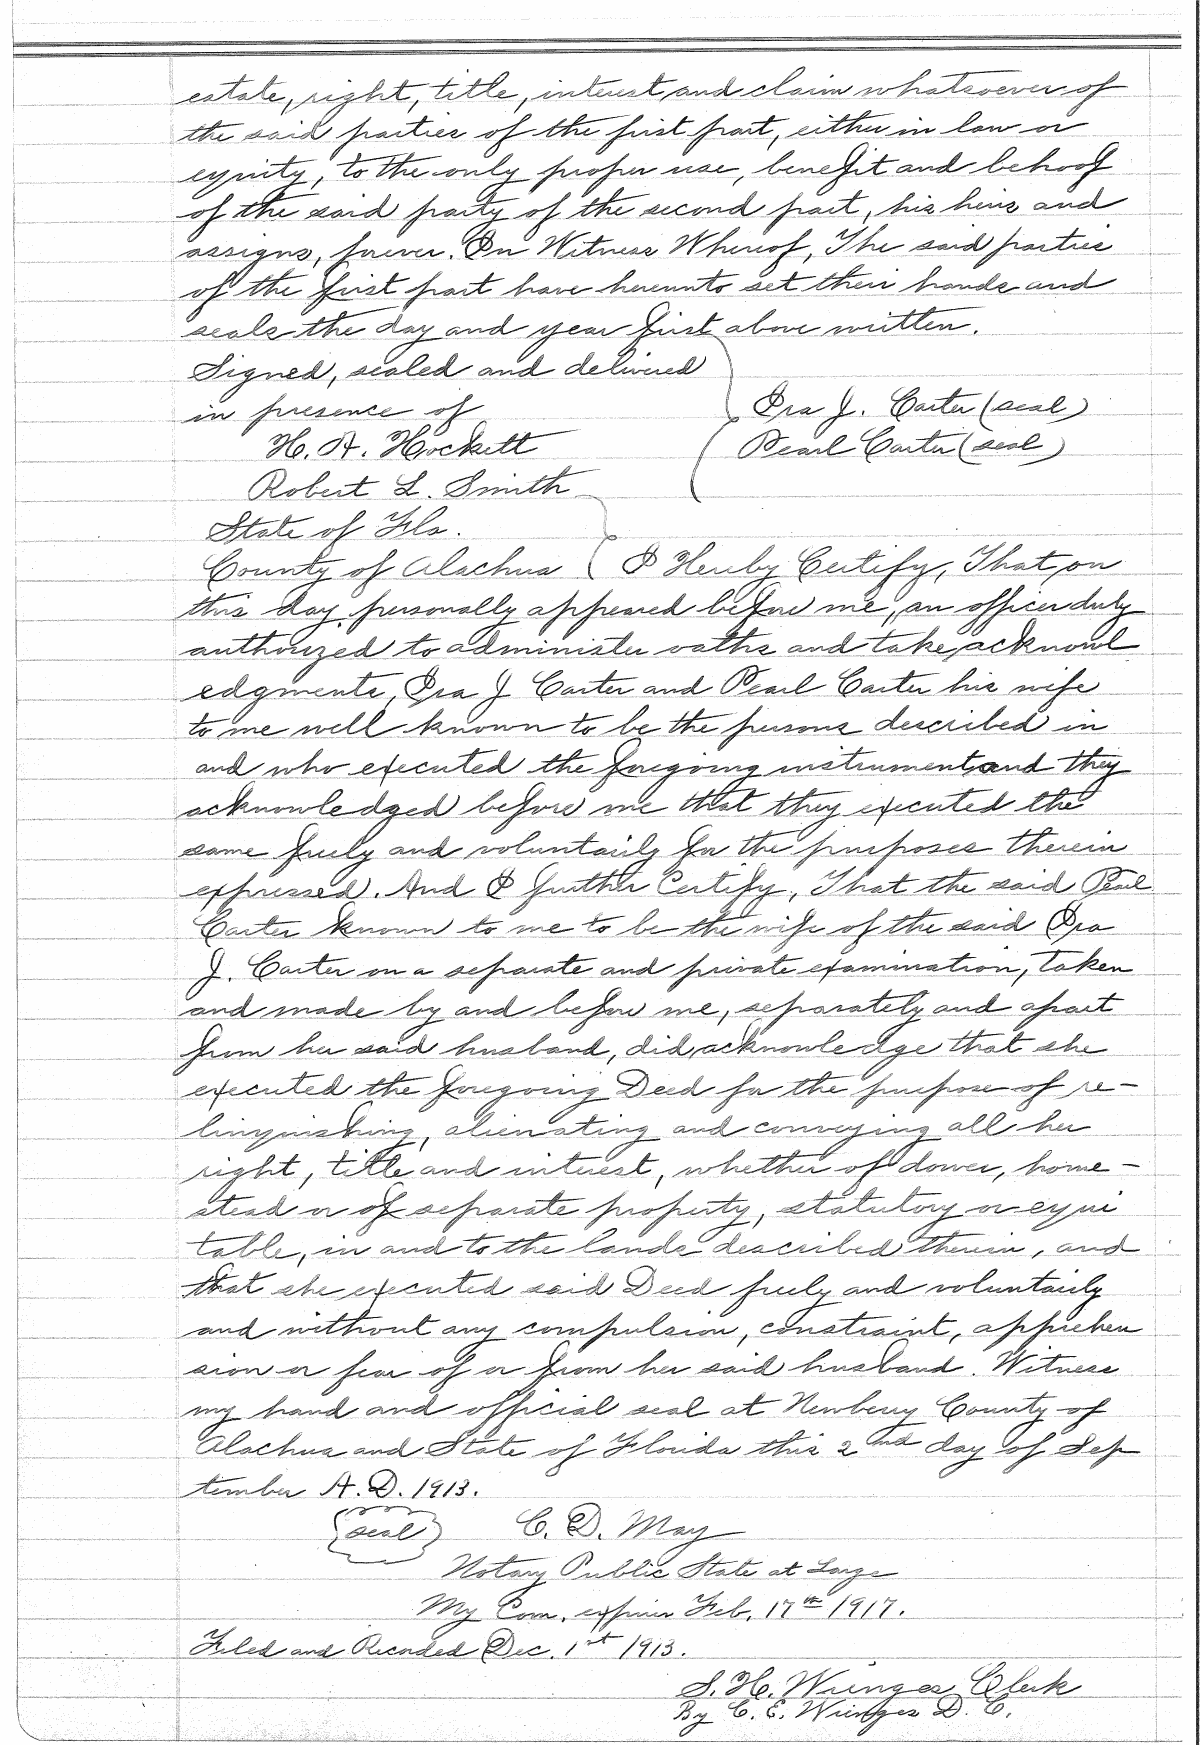 estate, right, title, interest and claim whatsoever of
the said parties of the first part, either in law or
equity, to the only proper use, benefit and behoof
of the said party of the second part, his heirs and
assigns, forever. In Witness Whereof, The said parties
of the first part have hereunto set their hands and
seals the day and year first above written.
Signed, sealed and delivered
in presence of Ira J. Carter (seal)
H. A. Hockett Pearl Carter (seal)
Robert L. Smith
State of Fla.
County of Alachua I Hereby Certify, That on
this day personally appeared before me, an officer duly
authorized to administer oaths and take acknowl
edgments, Ira J Carter and Pearl Carter his wife
to me well known to be the persons described in
and who executed the foregoing instrument and they
acknowledged before me that they executed the
same freely and voluntarily for the purposes therein
expressed. And I further Certify, That the said Pearl
Carter known to me to be the wife of the said Ira
J. Carter on a separate and private examination, taken
and made by and before me, separately and apart
from her said husband, did acknowledge that she
executed the foregoing Deed for the purpose of re-
linquishing, alienating and conveying all her
right, title and interest, whether of dower, home-
stead or of separate property, statutory or equi
table, in and to the lands described therein, and
that she executed said Deed freely and voluntarily
and without any compulsion, constraint, apprehen
sion or fear of or from her said husband. Witness
my hand and official seal at Newberry County of
Alachua and State of Florida this 2nd day of Sep
tember A. D. 1913.
(seal) C. D. May
Notary Public State at Large
My Com. expires Feb. 17th 1917.
Filed and Recorded Dec. 1st 1913.
S. H. Wienges Clerk
By C. E. Wienges D. C.